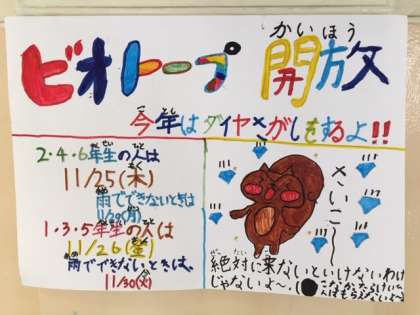 かいほう
ビオトープ 開放
今年はダイヤさがしをするよ!!
2・4・6年生の人は
11/25(木)
雨でできないときは
11/29(月)
1・3・5年生の人は
11/26(金)
雨でできないときは、
11/30(火)
さいこ〜
絶対に来ないといけないわけ
じゃないよ〜。